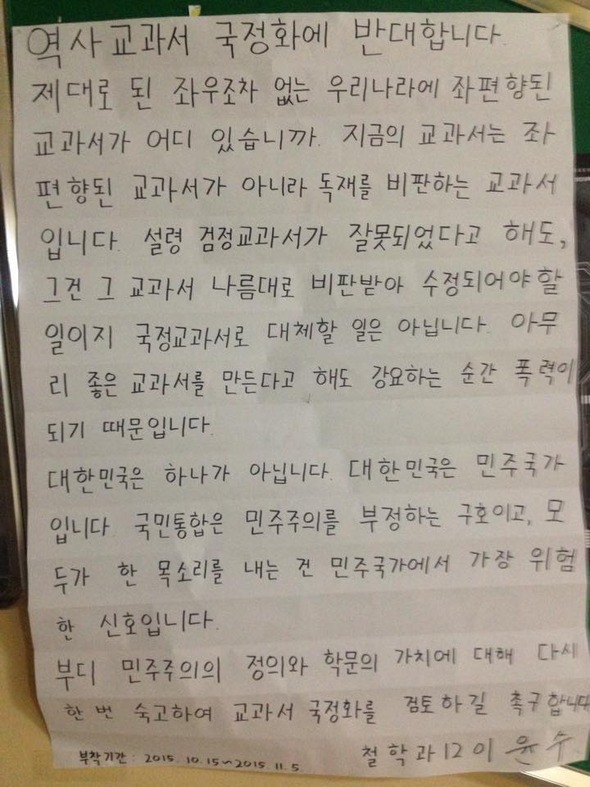 역사교과서 국정화에 반대합니다.
제대로 된 좌우조차 없는 우리나라에 좌편향된
교과서가 어디 있습니까. 지금의 교과서는 좌
편향된 교과서가 아니라 독재를 비판하는 교과서
입니다. 설령 검정교과서가 잘못되었다고 해도,
그건 그 교과서 나름대로 비판받아 수정되어야 할
일이지 국정교과서로 대체할 일은 아닙니다. 아무
리 좋은 교과서를 만든다고 해도 강요하는 순간 폭력이
되기 때문입니다.
대한민국은 하나가 아닙니다. 대한민국은 민주국가
입니다. 국민통합은 민주주의를 부정하는 구호이고, 모
두가 한 목소리를 내는 건 민주국가에서 가장 위험
한 신호입니다.
부디 민주주의의 정의와 학문의 가치에 대해 다시
한 번 숙고하여 교과서 국정화를 검토하길 촉구합니다
부착기간 : 2015. 10. 15 ~ 2015. 11. 5. 철학과 12 이윤수